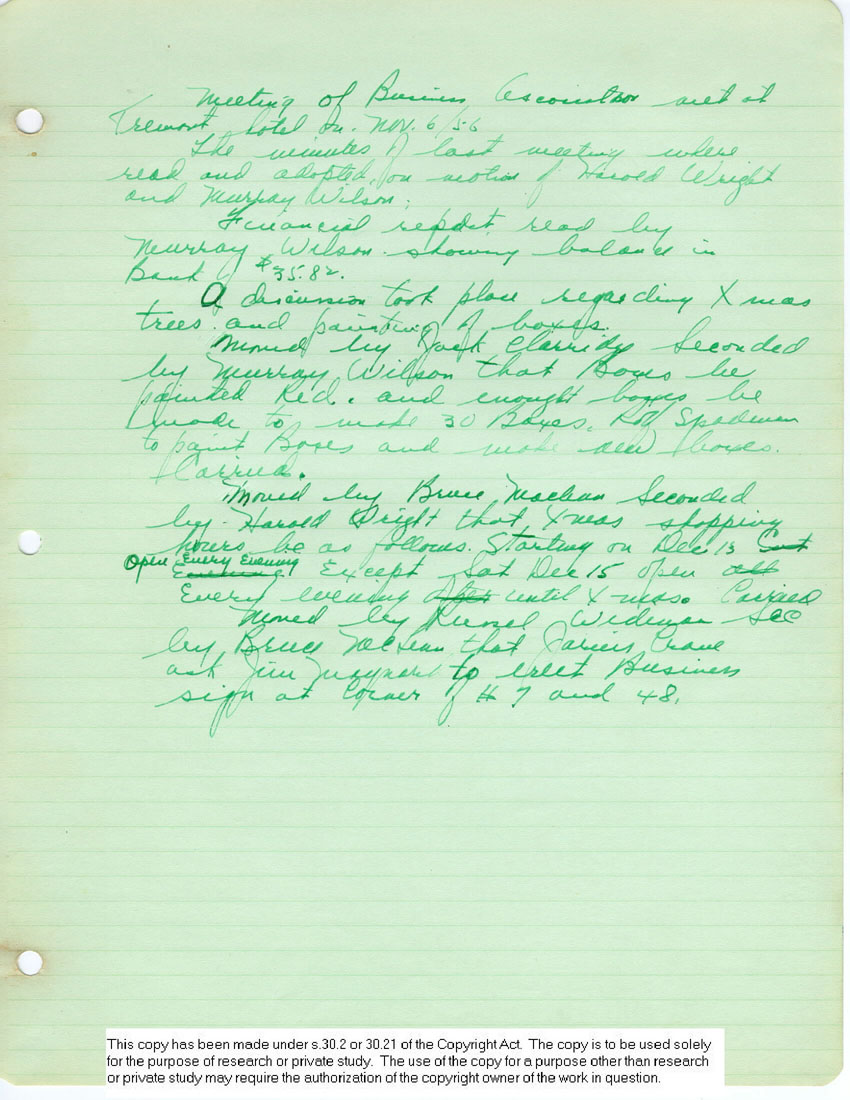 Meeting of Business Association met at
Tremont hotel on. Nov. 6/56
The minutes of last meeting where
read and adopted, on motion of Harold Wright
and Murray Wilson.
Financial report read by
Murray Wilson. showing balance in
Bank of $35.82.
A discussion took place regarding Xmas
trees. and painting of boxes.
Moved by Jack Clarridge Seconded
by Murray Wilson that Boxes be
painted Red. and enought boxes be
made to make 30 Boxes. Roy Spademan
to paint Boxes and make new boxes.
Carried.
Moved by Bruce Maclean Seconded
by Harold Wright that Xmas shopping
hours be as follows. Starting on Dec 13
Open Every Evening Except Sat Dec 15 open
Every evening until X-mas. Carried
Moved by Russel Wideman Sec
by Bruce McLean that Jarvis Crane
ask Jim Maynard to erect Business
sign at Corner of # 7 and 48.
This copy has been made under s.30.2 or 30.21 of the Copyright Act. The copy is to be used solely
for the purpose of research or private study. The use of the copy for a purpose other than research
or private study may require the authorization of the copyright owner of the work in question.